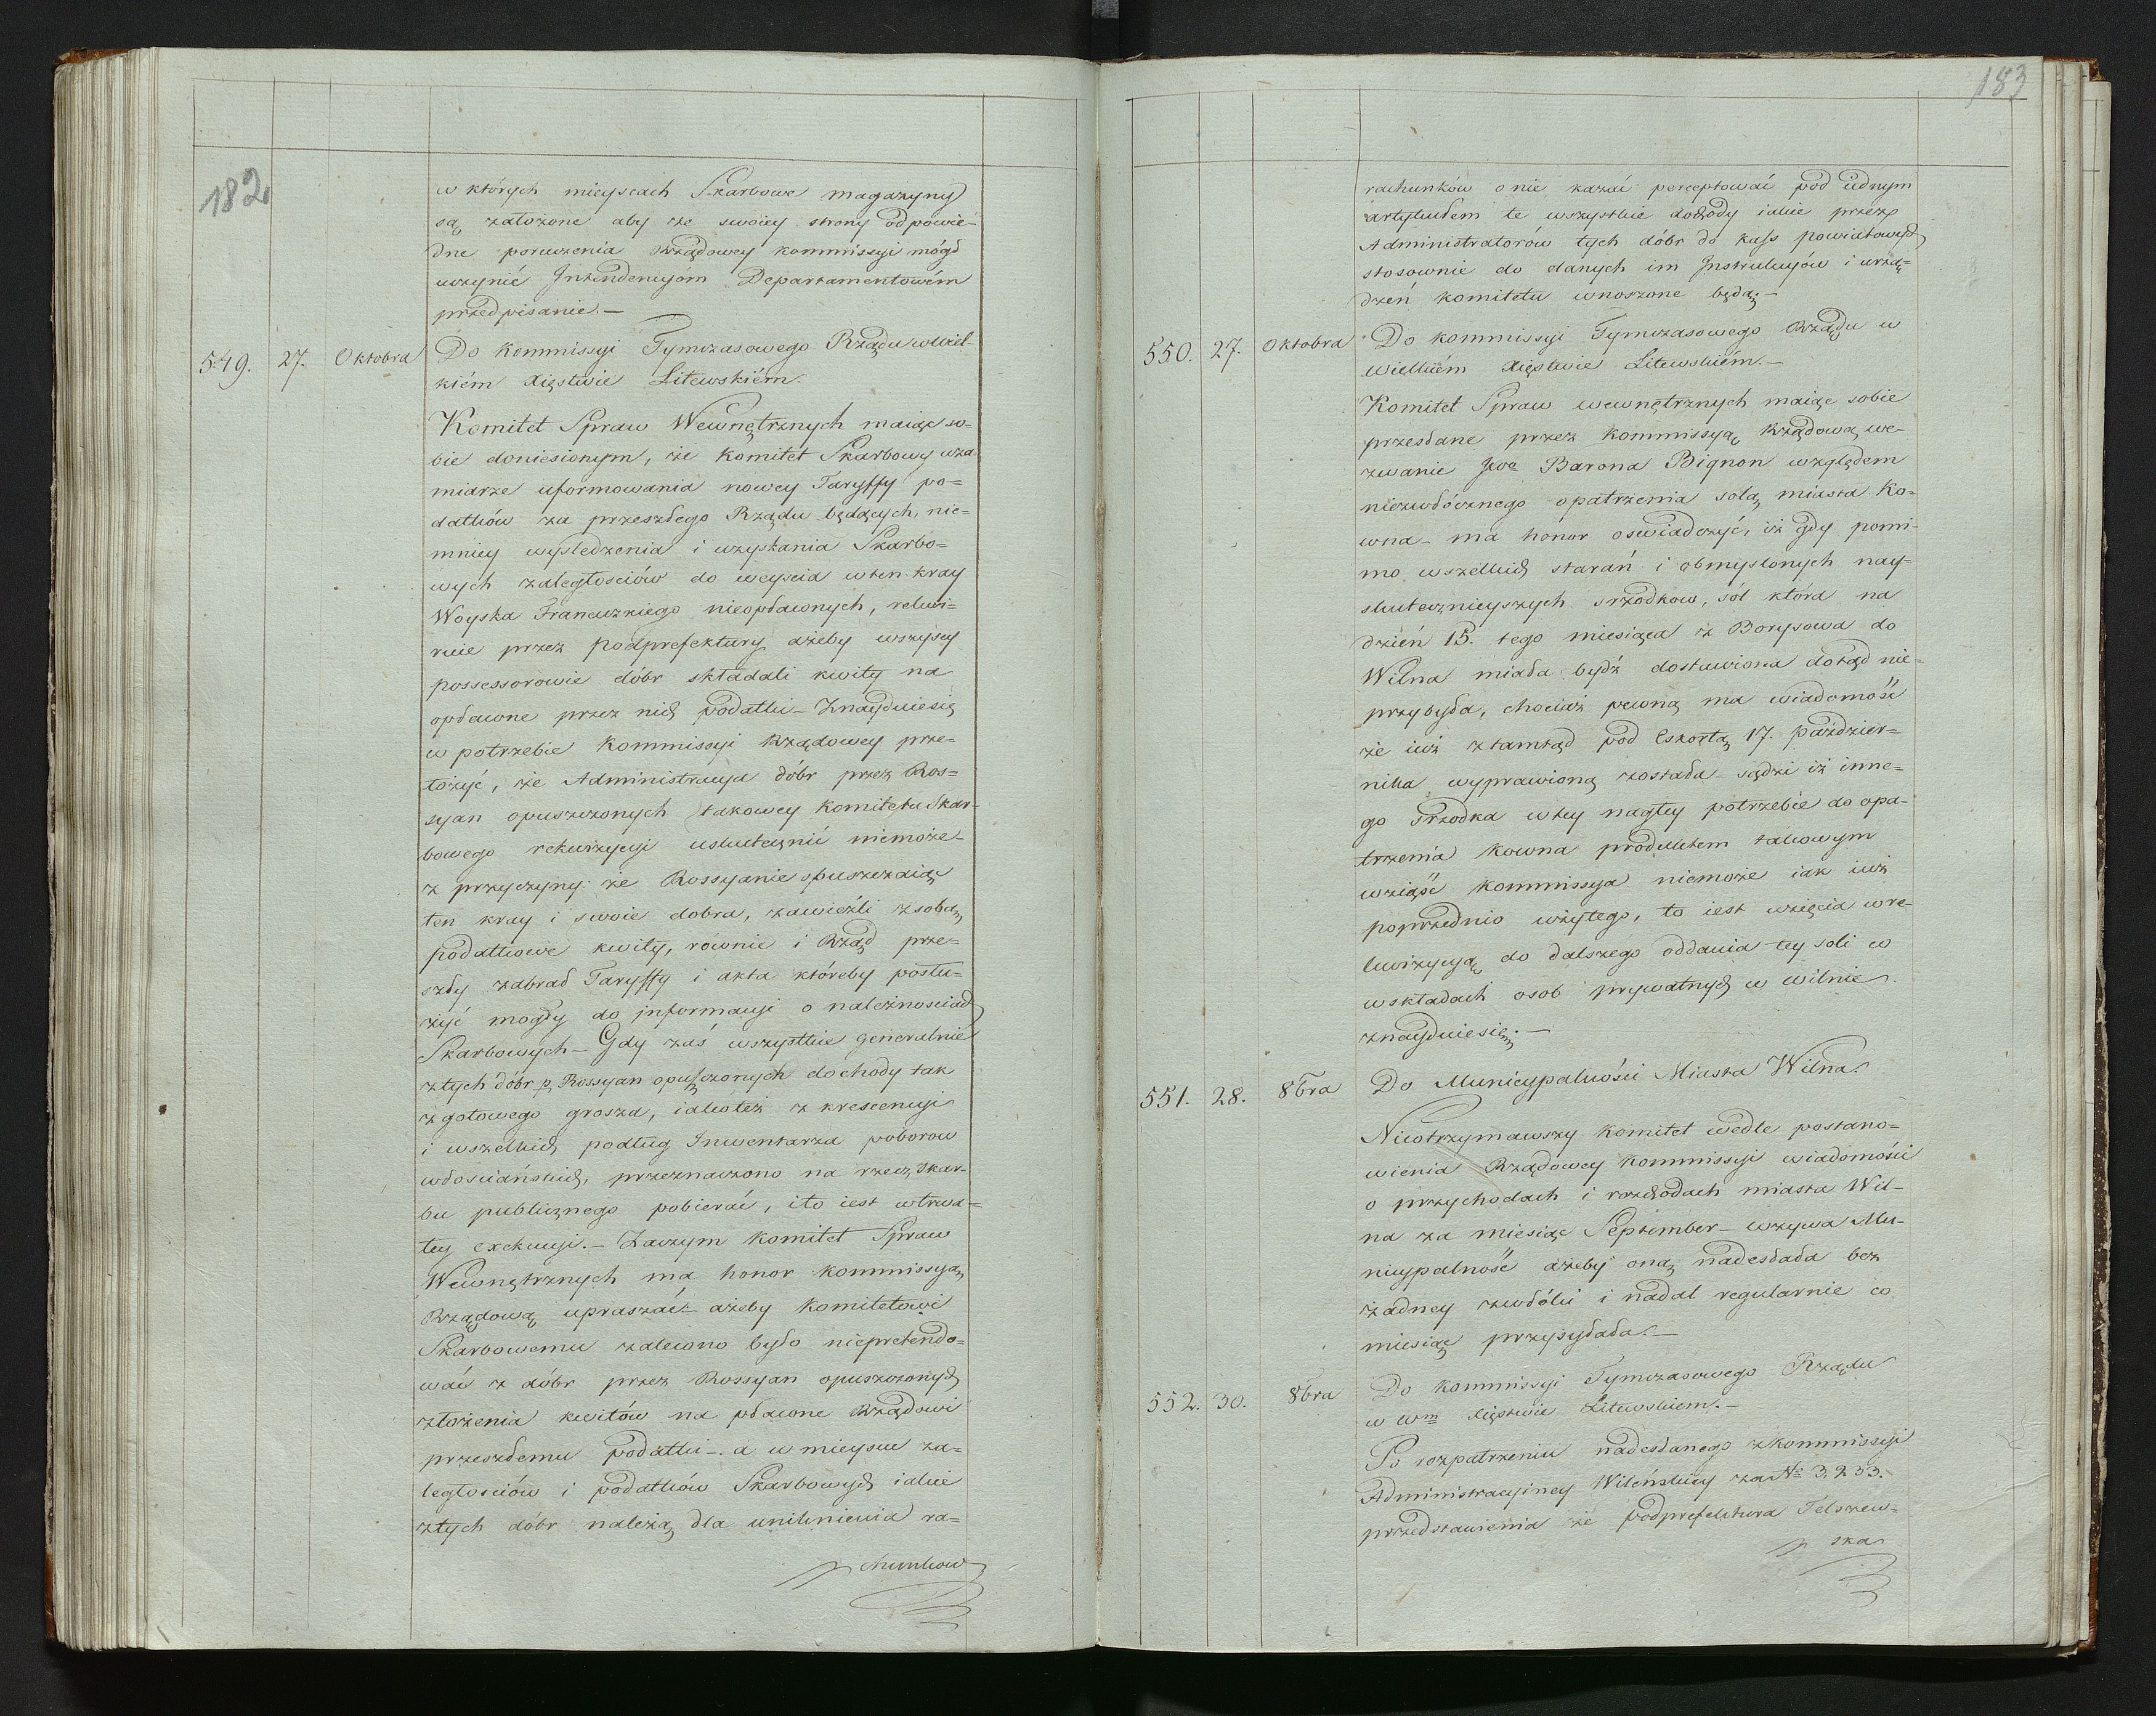 182
w których mieyscach Skarbowe magazyny
są założone aby ze swoiey strony odpowie=
dne poruczenia Rządowey kommissyi mógł
uczynić Intendencyóm Departamentowém
przedpisanie.—
549. 27. Oktobra Do Kommissyi Tymczasowego Rządu w wiel-
kiém Xięstwie Litewskiém.
Komitet Spraw Wewnętrznych maiąc so=
bie doniesionym, że Komitet Skarbowy w za-
miarze uformowania nowey Taryffy po=
datków za przeszłego Rządu będących, nie=
mniey wysledzenia i uzyskania Skarbo=
wych zaległosciów do weyscia w ten kray
Woyska Francuzkiego nieopłaconych, rekwi=
ruie przez Podprefektury ażeby wszyscy
possessorowie dóbr składali kwity na
opłacone przez nich podatki — Znayduie się
w potrzebie Kommissyi Rządowey prze=
łożyć, że Administracya dóbr przez Ros=
syan opuszczonych takowey Komitetu Skar-
bowego rekwizycyi uskutecznić niemoże —
z przyczyny: że Rossyanie opuszczaiąc
ten kray i swoie dobra, zawieźli z sobą
podatkowe kwity, równie i Rząd prze=
szły zabrał Taryffy i akta któreby posłu=
żyć mogły do informacyi o należnosciach
Skarbowych — Gdy zaś wszystkie generalnie
z tych dóbr p. Rossyan opuszczonych dochody tak
z gotowego grosza, iako też z krescencyi
i wszelkich podług Inwentarza poborow
włosciańskich, przeznaczono na rzecz Skar-
bu publicznego pobierać, i to iest w trwa=
łey exekucyi. — Zaczym Komitet Spraw
Wewnętrznych ma honor Kommissyą
Rządową upraszać: ażeby Komitetowi
Skarbowemu zalecono było niepretendo=
wać z dóbr przez Rossyan opuszczonych
złożenia kwitów na płacone Rządowi
przeszłemu podatki —. a w mieysce za=
ległosciów i podatków Skarbowych iakie
z tych dóbr należą, dla uniknienia ra=
chunkow
183
rachunków o nie kazać perceptować pod iednym
artykułem te wszystkie dochody iakie przez
Administratorów tych dóbr do kass powiatowych
stosownie do danych im Instrukcyów i urzą=
dzeń komitetu wnoszone będą; —
550. 27. Oktobra Do Kommissyi Tymczasowego Rządu w
wielkiém Xięstwie Litewskiém. —
Komitet Spraw wewnętrznych maiąc sobie
przesłane przez Kommissyą Rządową we-
zwanie Barona Bignon względem
niezwłócznego opatrzenia solą miasta Ko-
wna — ma honor oswiadczyć, iż gdy pomi-
mo wszelkich starań i obmyslonych nay-
skutecznieyszych srzodkow, sól która na
dzień 15. tego miesiąca z Borysowa do
Wilna miała bydź dostawiona dotąd nie=
przybyła, chociaż pewną ma wiadomość
że iuż ztamtąd pod Eskortą 17. paździer=
nika wyprawioną została — sądzi iż inne=
go srzodka w tey nagłey potrzebie do opa-
trzenia Kowna produktem takowym
wziąść Kommissya niemoże iak iuż
poprzednio użytego, to iest wzięcia w re-
kwizycyą do dalszego oddania tey soli co
w składach osob prywatnych w Wilnie
znayduie się; —
551. 28. 8bra Do Municypalności Miasta Wilna.
Nieotrzymawszy Komitet wedle postano=
wienia Rządowey Kommissyi wiadomości
o przychodach i rozchodach miasta Wil-
na za miesiąc September — wzywa Mu-
nicypalność ażeby oną nadesłała bez
żadney zwłóki i nadal regularnie co
miesiąc przysyłała. —
552. 30. 8bra Do Kommissyi Tymczasowego Rządu
w Wm Xięstwie Litewskiem. —
Po rozpatrzeniu nadesłanego z Kommissyi
Administracyiney Wileńskiey za № 3,233.
przedstawienia że podprefektura Telszew-
ska